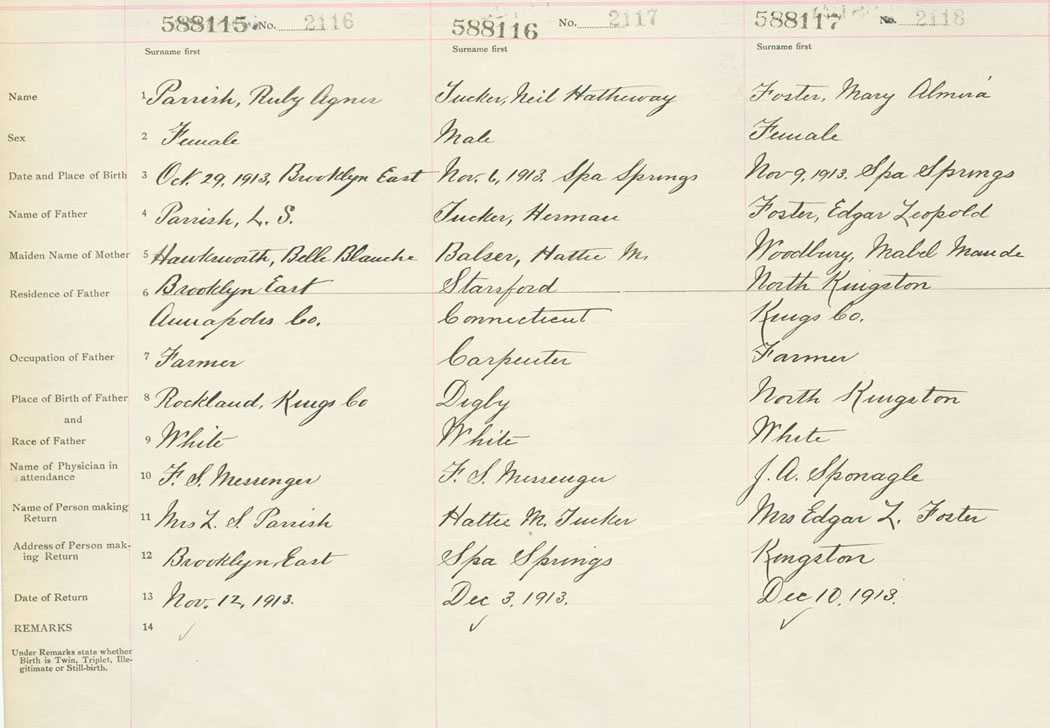 588115 No. 2116 588116 No. 2117 588117 No. 2118
Surname first Surname first Surname first
Name 1 Parrish, Ruby Agnes Tucker, Neil Hatheway Foster, Mary Almira
Sex 2 Female Male Female
Date and Place of Birth 3 Oct. 29, 1913, Brooklyn East Nov. 6, 1913. Spa Springs Nov 9, 1913. Spa Springs
Name of Father 4 Parrish, L. S. Tucker, Herman Foster, Edgar Leopold
Maiden Name of Mother 5 Hawksworth, Belle Blanche Balser, Hattie M. Woodbury, Mabel Maude
Residence of Father 6 Brooklyn East Stansford North Kingston
Annapolis Co. Connecticut Kings Co.
Occupation of Father 7 Farmer Carpenter Farmer
Place of Birth of Father 8 Rockland, Kings Co Digby North Kingston
and
Race of Father 9 White White White
Name of Physician in
attendance 10 F. S. Messenger F. S. Messenger J. A. Sponagle
Name of Person making
Return 11 Mrs L. S. Parrish Hattie M. Tucker Mrs Edgar L. Foster
Address of Person mak-
ing Return 12 Brooklyn East Spa Springs Kingston
Date of Return 13 Nov. 12, 1913. Dec 3, 1913. Dec 10, 1913.
REMARKS 14 ✓ ✓ ✓
Under Remarks state whether
Birth is Twin, Triplet, Ille-
gitimate or Still-birth.